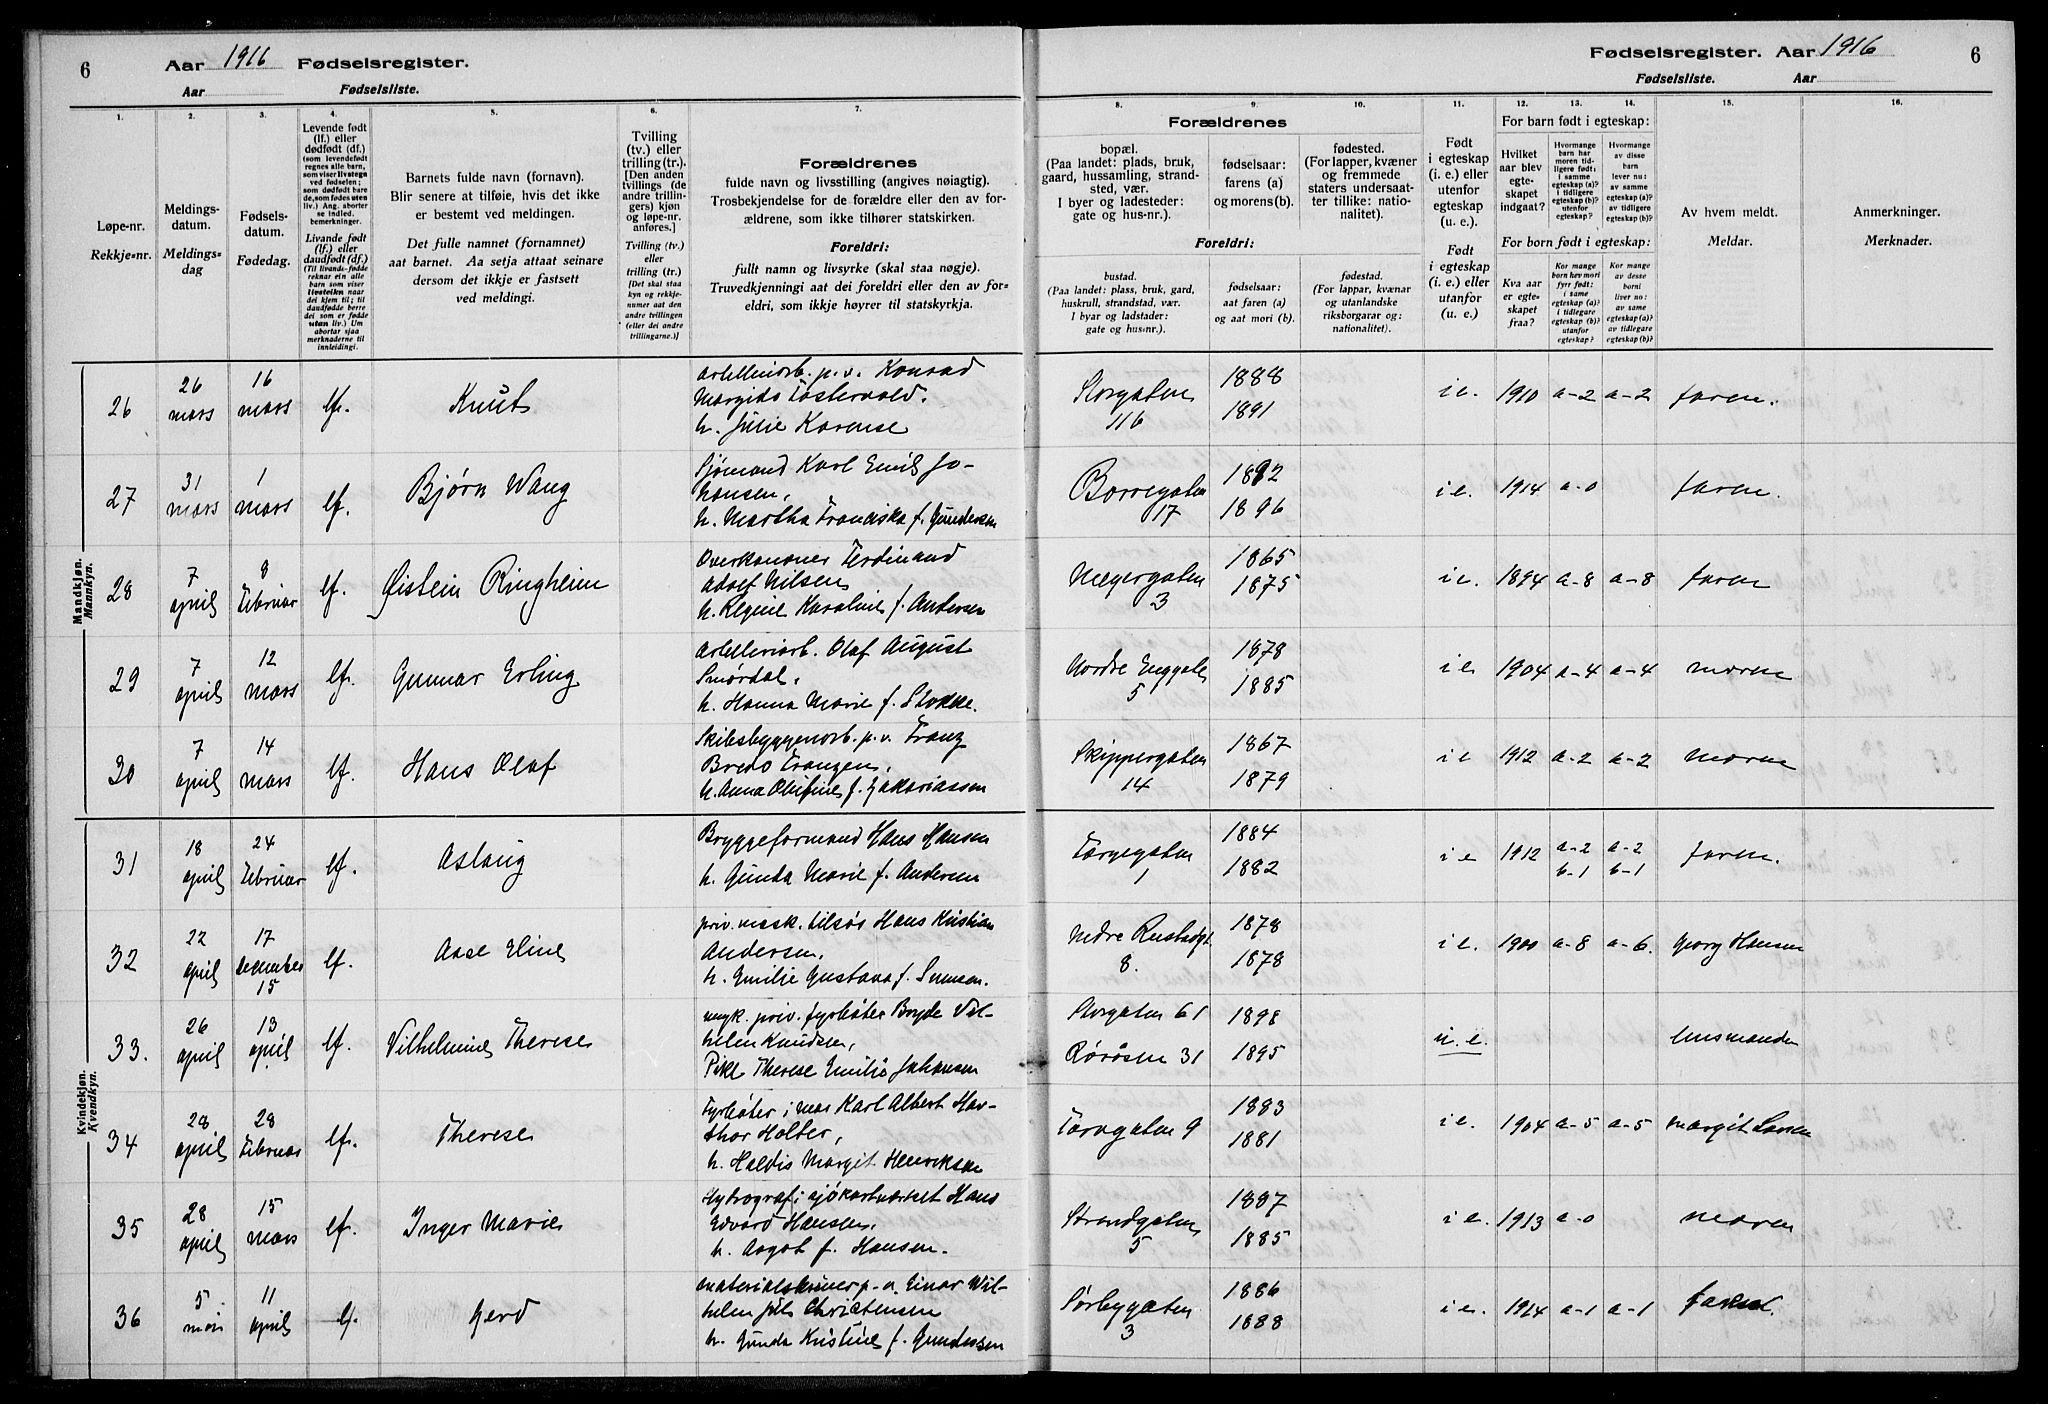 6
Aar 1916 Fødselsregister.
Aar Fødselsliste.
Fødselsregister. Aar 1916
6
Fødselsliste. Aar
1.
2.
3.
4.
5.
6.
7.
8.
9.
10.
11.
12.
13.
14.
15.
16.
Løpe-nr.
Rekkje=nr.
Meldings-
datum.
Meldings=
dag
Fødsels-
datum.
Fødedag.
Levende født
(lf.) eller
dødfødt (df.)
(som levendefødt
regnes alle barn,
som viser livstegn
ved fødselen;
som dødfødt bare
de, som fødes uten
liv.) Ang. aborter
se indled.
bemerkninger.
Livande født
(lf.) eller
daudfødt (df.)
(Til livands-fødde
reknar ein alle
barn som viser
livsteikn naar
dei kjem til; til
daudfødde berre
dei som er fødde
utan liv.) Um
abortar sjaa
merknaderne til
innleidingi.
Barnets fulde navn (fornavn).
Blir senere at tilføie, hvis det ikke
er bestemt ved meldingen.
Det fulle namnet (fornamnet)
aat barnet. Aa setja attaat seinare
dersom det ikkje er fastsett
ved meldingi.
Tvilling
(tv.) eller
trilling (tr.).
[Den anden
tvillings (de
andre trillin-
gers) kjøn
og løpe-nr.
anføres.]
Tvilling (tv.)
eller
trilling (tr.)
[Det skal staa
kyn og rekkje-
numer aat den
andre tvillingen
(eller dei andre
trillingarne.)]
Forældrenes
fulde navn og livsstilling (angives nøiagtig).
Trosbekjendelse for de forældre eller den av for-
ældrene, som ikke tilhører statskirken.
Foreldri:
fullt namn og livsyrke (skal staa nøgje).
Truvedkjenningi aat dei foreldri eller den av for=
eldri, som ikkje høyrer til statskyrkja.
Forældrenes
bopæl.
(Paa landet: plads, bruk,
gaard, hussamling, strand-
sted, vær.
I byer og ladesteder:
gate og hus-nr.).
fødselsaar:
farens (a)
og morens (b).
fødested.
(For lapper, kvæner
og fremmede
staters undersaat-
ter tillike: natio-
nalitet).
Foreldri:
bustad.
(Paa landet: plass, bruk, gard,
huskrull, strandstad, vær.
I byar og ladstader:
gate og hus=nr.).
fødselsaar:
aat faren (a)
og aat mori (b).
fødestad.
(For lappar, kvænar
og utanlandske
riksborgarar og:
nationalitet).
Født
i egteskap
(i. e.) eller
utenfor
egteskap
(u. e.).
Født
i egteskap
(i. e.) eller
utanfor
(u. e.)
For barn født i egteskap:
Hvilket
aar blev
egte-
skapet
indgaat?
Hvormange
barn har
moren tid-
ligere født:
i samme
egteskap (a)?
i tidligere
egteskap (b)?
utenfor
egteskap?
Hvormange
av disse
barn
lever nu:
av samme
egteskap (a)?
av tidligere
egteskap (b)?
For born født i egteskap:
Kva aar
er egte-
skapet
fraa?
Kor mange
born hev mori
fyrr født:
i same
egteskap (a)?
i tidlegare
egteskap (b)?
utanfor
egteskap?
Kor mange
av desse
borni
liver no:
av same
egteskap (a)?
av tidlegare
egteskap (b)?
Av hvem meldt.
Meldar.
Anmerkninger.
Merknader.
Mandkjøn.
Mannkyn.
26 26 mars 16 mars lf. Knut
Margido Tostervold.
h. Julie Karense
Storgaten 116 1888 1891 i e. 1910 a-2 a-2 faren.
27 31 mars 1 mars lf. Bjørn Wang
Sjømand Karl Emil Jo-
hansen,
h. Martha Franciska f. Gundersen
Borregaten 17 1896 i e. 1914 a-0 faren.
28 7 april 8 Februar lf. Øistein Ringheim
Overkanoner Ferdinand
Adolf Nilsen
h. Regine Karoline f. Andersen
3 1865 1875 i e. 1894 a-8 a-8 faren
29 7 april 12 mars lf. Gunnar Erling
Olaf August
Smørdal,
h. Hanna Marie f. Stokke.
Nordre Enggate 5 1878 1885 i e 1904 a-4 a-4 moren
30 7 april 14 mars lf. Hans Olaf
Skibsbyggerarb. p.v. Franz
Bredo Franzen,
h. Anna Olufine f. Zakariassen
Skippergaten 14 1867 1879 i e 1912 a-2 a-2 moren
Kvindekjøn.
Kvendkyn.
31 18 april 24 Februar lf. Aslaug
Bryggeformand Hans Hansen
h. Gunda Marie f. Andersen
1 1884 1882 i e 1912 a-2 b-1 a-2 b-1 faren.
32 22 april 17 december 15 lf. Aase Eline
priv. mask. tilsøs Hans Kristian
Andersen,
h. Emilie Gustava f. Svensen.
8. 1878 1878 i e. 1900 a-8 a-6. Georg Hansen
33. 26 april 13 april lf. Vilhelmine Therese
ungk. priv. fyrbøter Bryde Vil-
helm Knudsen,
Pike Therese Emilie Johansen
Storgaten 61 1898
Røråsen 31 1895 u. e.
34 28 april 28 Februar lf. Therese
Fyrbøter i mar Karl Albert Hav-
thor Holter,
h. Haldis Margit Henriksen
9 1883 1881 i e. 1904 a-5 a-5 Margit Larsen
35 28 april 15 mars lf. Inger Marie
Hydrograf i sjøkartverket Hans
Edvard Hansen,
h. Aagot f. Hansen.
Strandgaten 5 1887 1885 i e. 1913 a-0 moren
36 5 mai 11 april lf. Gerd
materialskriver p.v. Einar Wil-
helm Juls Christensen
h. Gunda Kristine f. Gundersen
Sørbygaten 3 1886 1888 i e. 1914 a-1 a-1 faren.